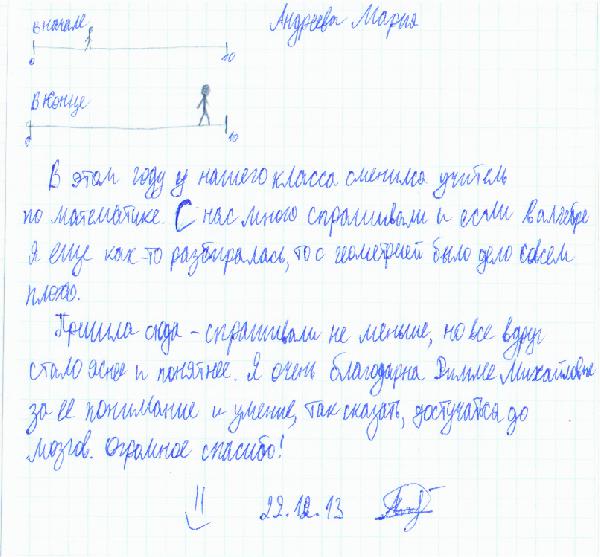 Андреева Мария
в начале
0 10
В конце
0 10
В этом году у нашего класса сменился учитель
по математике. С нас много спрашивали и если в алгебре
я еще как-то разбиралась, то с геометрией было дело совсем
плохо.
Пришла сюда - спрашивали не меньше, но все вдруг
стало яснее и понятнее. Я очень благодарна Римме Михайловне
за ее понимание и умение, так сказать, достучаться до
мозгов. Огромное спасибо!
22.12.13